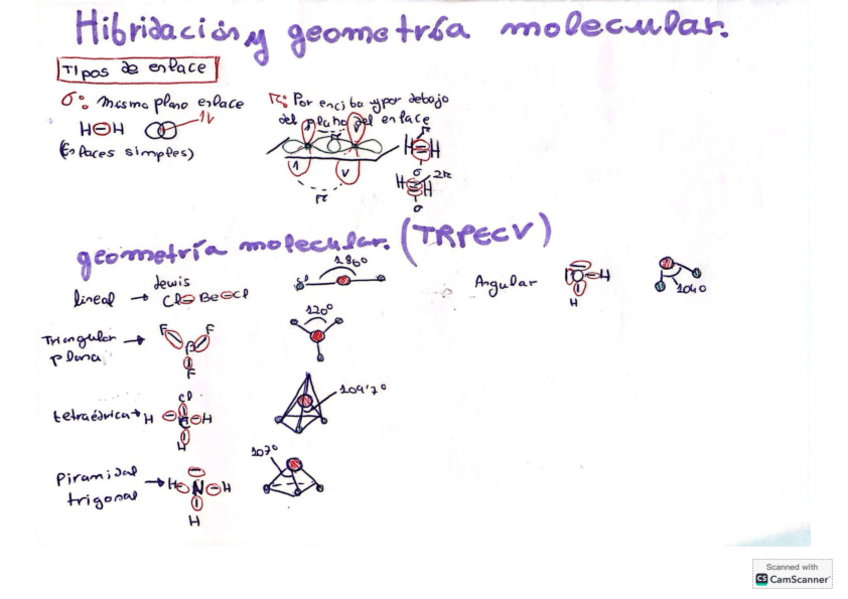 Hibridación y geometría molecular.
Tipos de enlace
σ: mismo plano enlace
π: Por enciba y por debajo
del plano del enlace
H H 1V
(Enlaces simples)
π
1 V
π
H H
σ
H H 2π
σ
geometría molecular. (TRPECV)
lewis
lineal → Cl Be Cl
1860
Angular
H
H
1040
Triangular →
plana
F F
B
F
120º
tetraédrica → H C H
Cl
H
104'7º
Piramidal
trigonal
→ H N H
H
107º
Scanned with
CS CamScanner